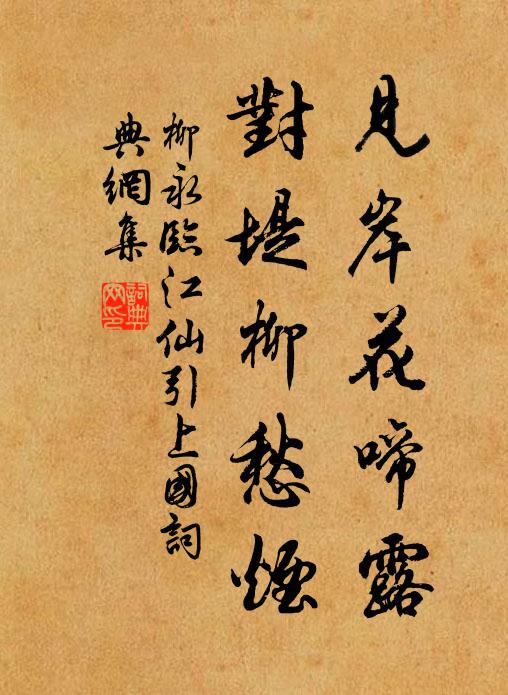 見岸花啼露
對堤柳愁煙
柳永臨江仙引上國詞
典網集
詞典網印